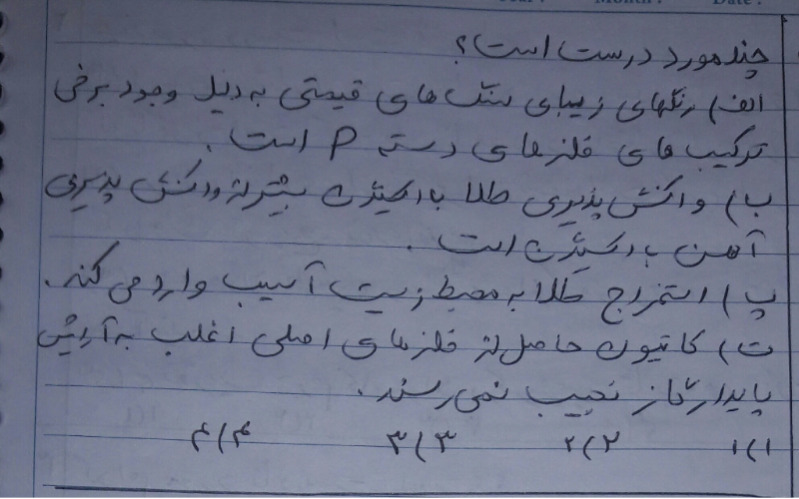 Year: Month: Date:
چند مورد درست است؟
الف) رنگهای زیبای سنگ های قیمتی به دلیل وجود برخی
ترکیب های فلزهای دسته p است.
ب) واکنش پذیری طلا با اکسیژن بیشتر از واکنش پذیری
آهن با اکسیژن است.
پ) استخراج طلا به محیط زیست آسیب وارد می کند.
ت) کاتیون حاصل از فلزهای اصلی اغلب به آرایش
پایدار گاز نجیب نمی رسند.
۱) ۱ ۲) ۲ ۳) ۳ ۴) ۴